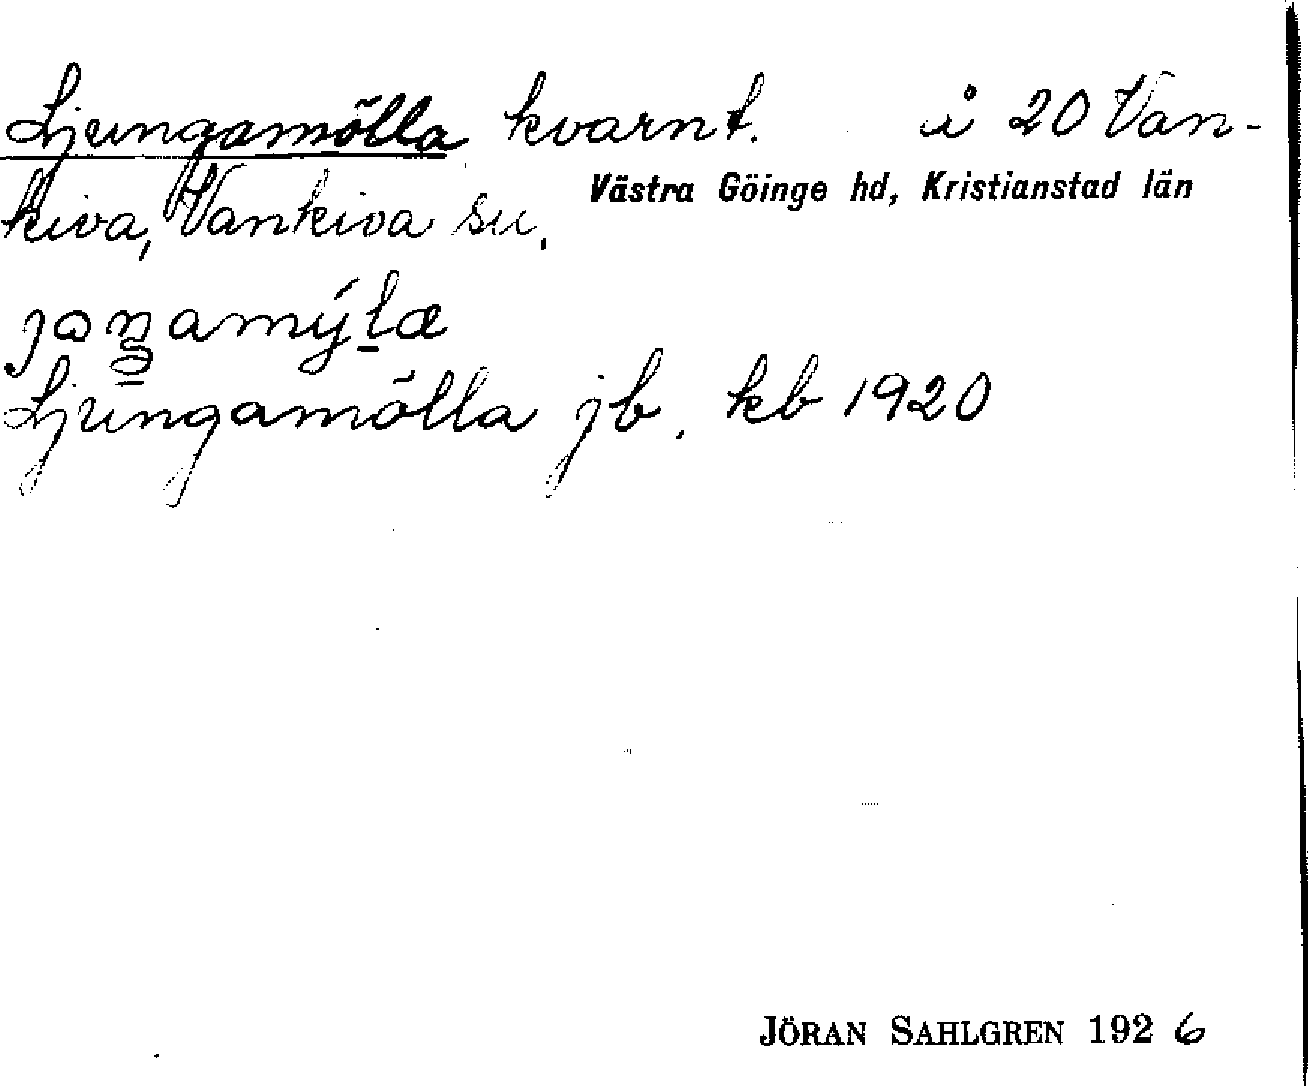 Ljungamölla kvarnt. å 20 Van-
kiva, Vankiva sn.
Västra Göinge hd, Kristianstad län
Ljungamölla jb. kb 1920
JÖRAN SAHLGREN 1926